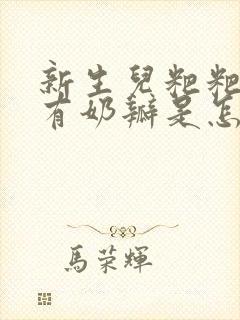 新生兒粑粑
有奶瓣是怎
馬荣輝